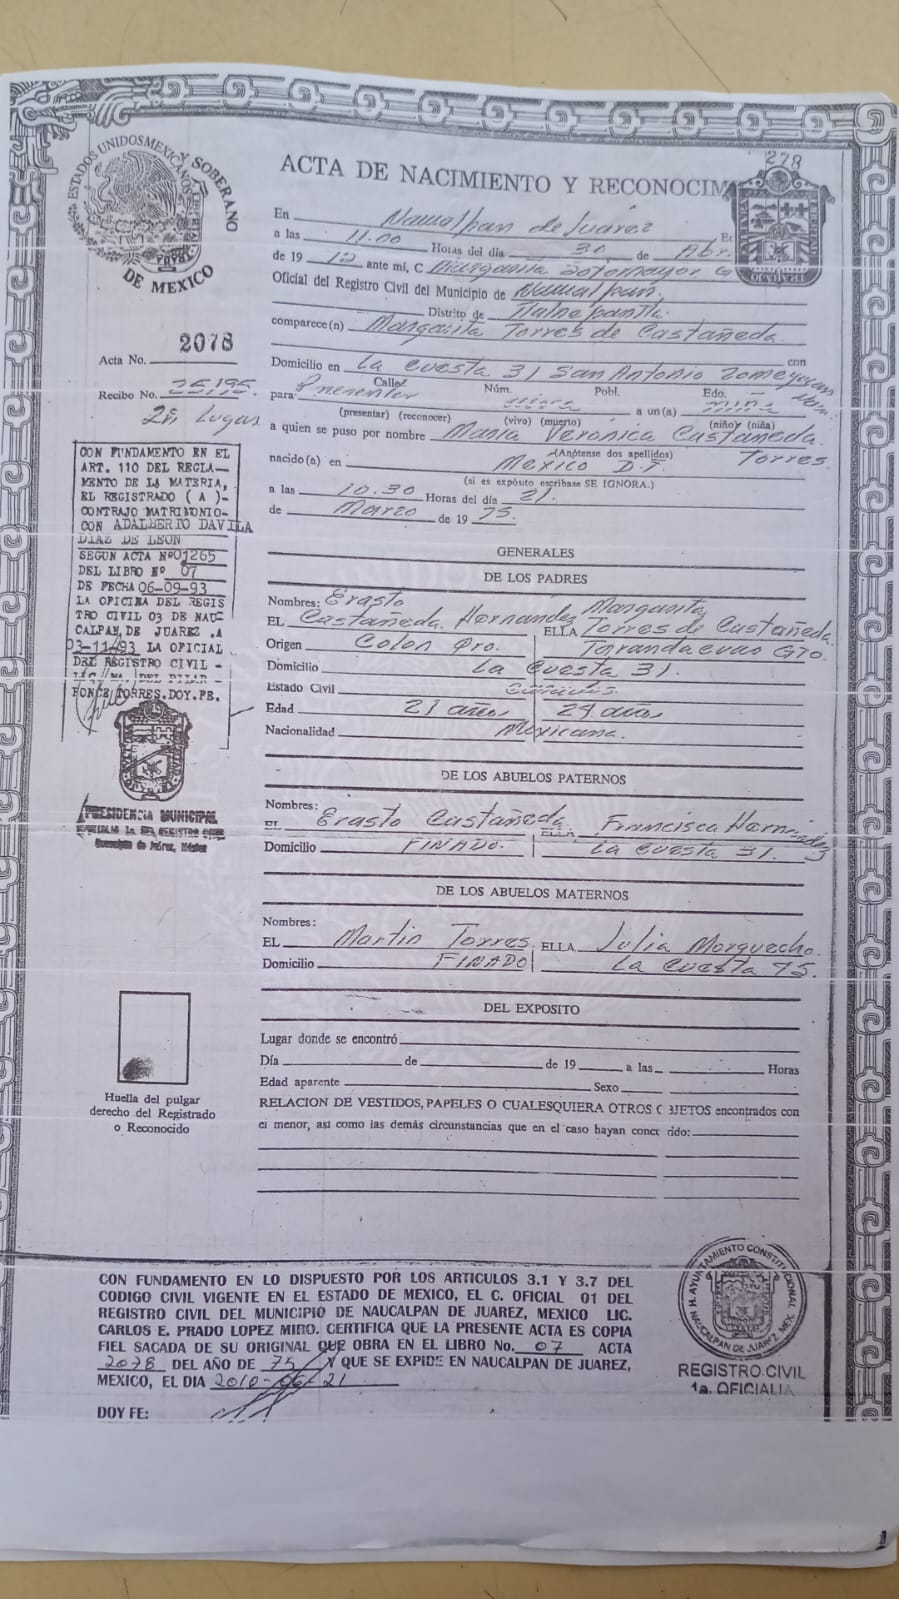 278
ESTADOS UNIDOS MEXICANOS
SOBERANO
DE MEXICO
ACTA DE NACIMIENTO Y RECONOCIM
En Naucalpan de Juárez
a las 11.00 Horas del día 30 de Abr.
de 19 ante mí, C Margarita Sotomayor G
Oficial del Registro Civil del Municipio de Naucalpan.
Distrito de Tlalnepantla.
comparece(n) Margarita Torres de Castañeda
2078
Acta No.
con
Domicilio en La Cuesta 31 San Antonio Zomeyucan
Calle Núm. Pobl. Edo.
Recibo No. 25195
para: Presentar viva a un(a) niña
(presentar) (reconocer) (vivo) (muerto) (niño) (niña)
a quien se puso por nombre Maria Veronica Castañeda
(Anótense dos apellidos) Torres.
nacido(a) en Mexico D.F.
(si es expósito escríbase SE IGNORA.)
a las 10.30 Horas del día 21.
de Marzo de 19 75.
CON FUNDAMENTO EN EL
ART. 110 DEL REGLA—
MENTO DE LA MATERIA,
EL REGISTRADO ( A )-
CONTRAJO MATRIMONIO-
CON ADALBERTO DAVILA
DIAZ DE LEON
SEGUN ACTA Nº01265
DEL LIBRO Nº 07
DE FECHA 06-09-93
LA OFICINA DEL REGIS
TRO CIVIL 03 DE NAU-
CALPAN, DE JUAREZ .A
03-11-93 LA OFICIAL
DEL REGISTRO CIVIL -
LIC. MA. DEL PILAR -
PONCE TORRES.DOY.FE.
PRESIDENCIA MUNICIPAL
GENERALES
DE LOS PADRES
Nombres: Erasto Margarita
EL Castañeda Hernandez ELLA Torres de Castañeda
Origen Colon Qro. Tarandacuao GTO.
Domicilio La Cuesta 31.
Estado Civil
Edad 21 años 24 años
Nacionalidad Mexicana.
DE LOS ABUELOS PATERNOS
Nombres:
EL Erasto Castañeda ELLA Francisca Hernandez
Domicilio FINADO. La Cuesta 31.
DE LOS ABUELOS MATERNOS
Nombres:
EL Martin Torres. ELLA Julia Morquecho.
Domicilio FINADO La Cuesta 75.
DEL EXPOSITO
Lugar donde se encontró
Día de de 19 a las Horas
Edad aparente Sexo
RELACION DE VESTIDOS, PAPELES O CUALESQUIERA OTROS ( BJETOS encontrados con
el menor, así como las demás circunstancias que en el caso hayan conc rido:
Huella del pulgar
derecho del Registrado
o Reconocido
CON FUNDAMENTO EN LO DISPUESTO POR LOS ARTICULOS 3.1 Y 3.7 DEL
CODIGO CIVIL VIGENTE EN EL ESTADO DE MEXICO, EL C. OFICIAL 01 DEL
REGISTRO CIVIL DEL MUNICIPIO DE NAUCALPAN DE JUAREZ, MEXICO LIC.
CARLOS E. PRADO LOPEZ MIRO. CERTIFICA QUE LA PRESENTE ACTA ES COPIA
FIEL SACADA DE SU ORIGINAL QUE OBRA EN EL LIBRO No. 07 ACTA
2078 DEL AÑO DE 75 Y QUE SE EXPIDE EN NAUCALPAN DE JUAREZ,
MEXICO, EL DIA 2010-06-21
DOY FE:
H. AYUNTAMIENTO CONSTITUCIONAL
NAUCALPAN DE JUAREZ MEX.
REGISTRO CIVIL
1a. OFICIALIA